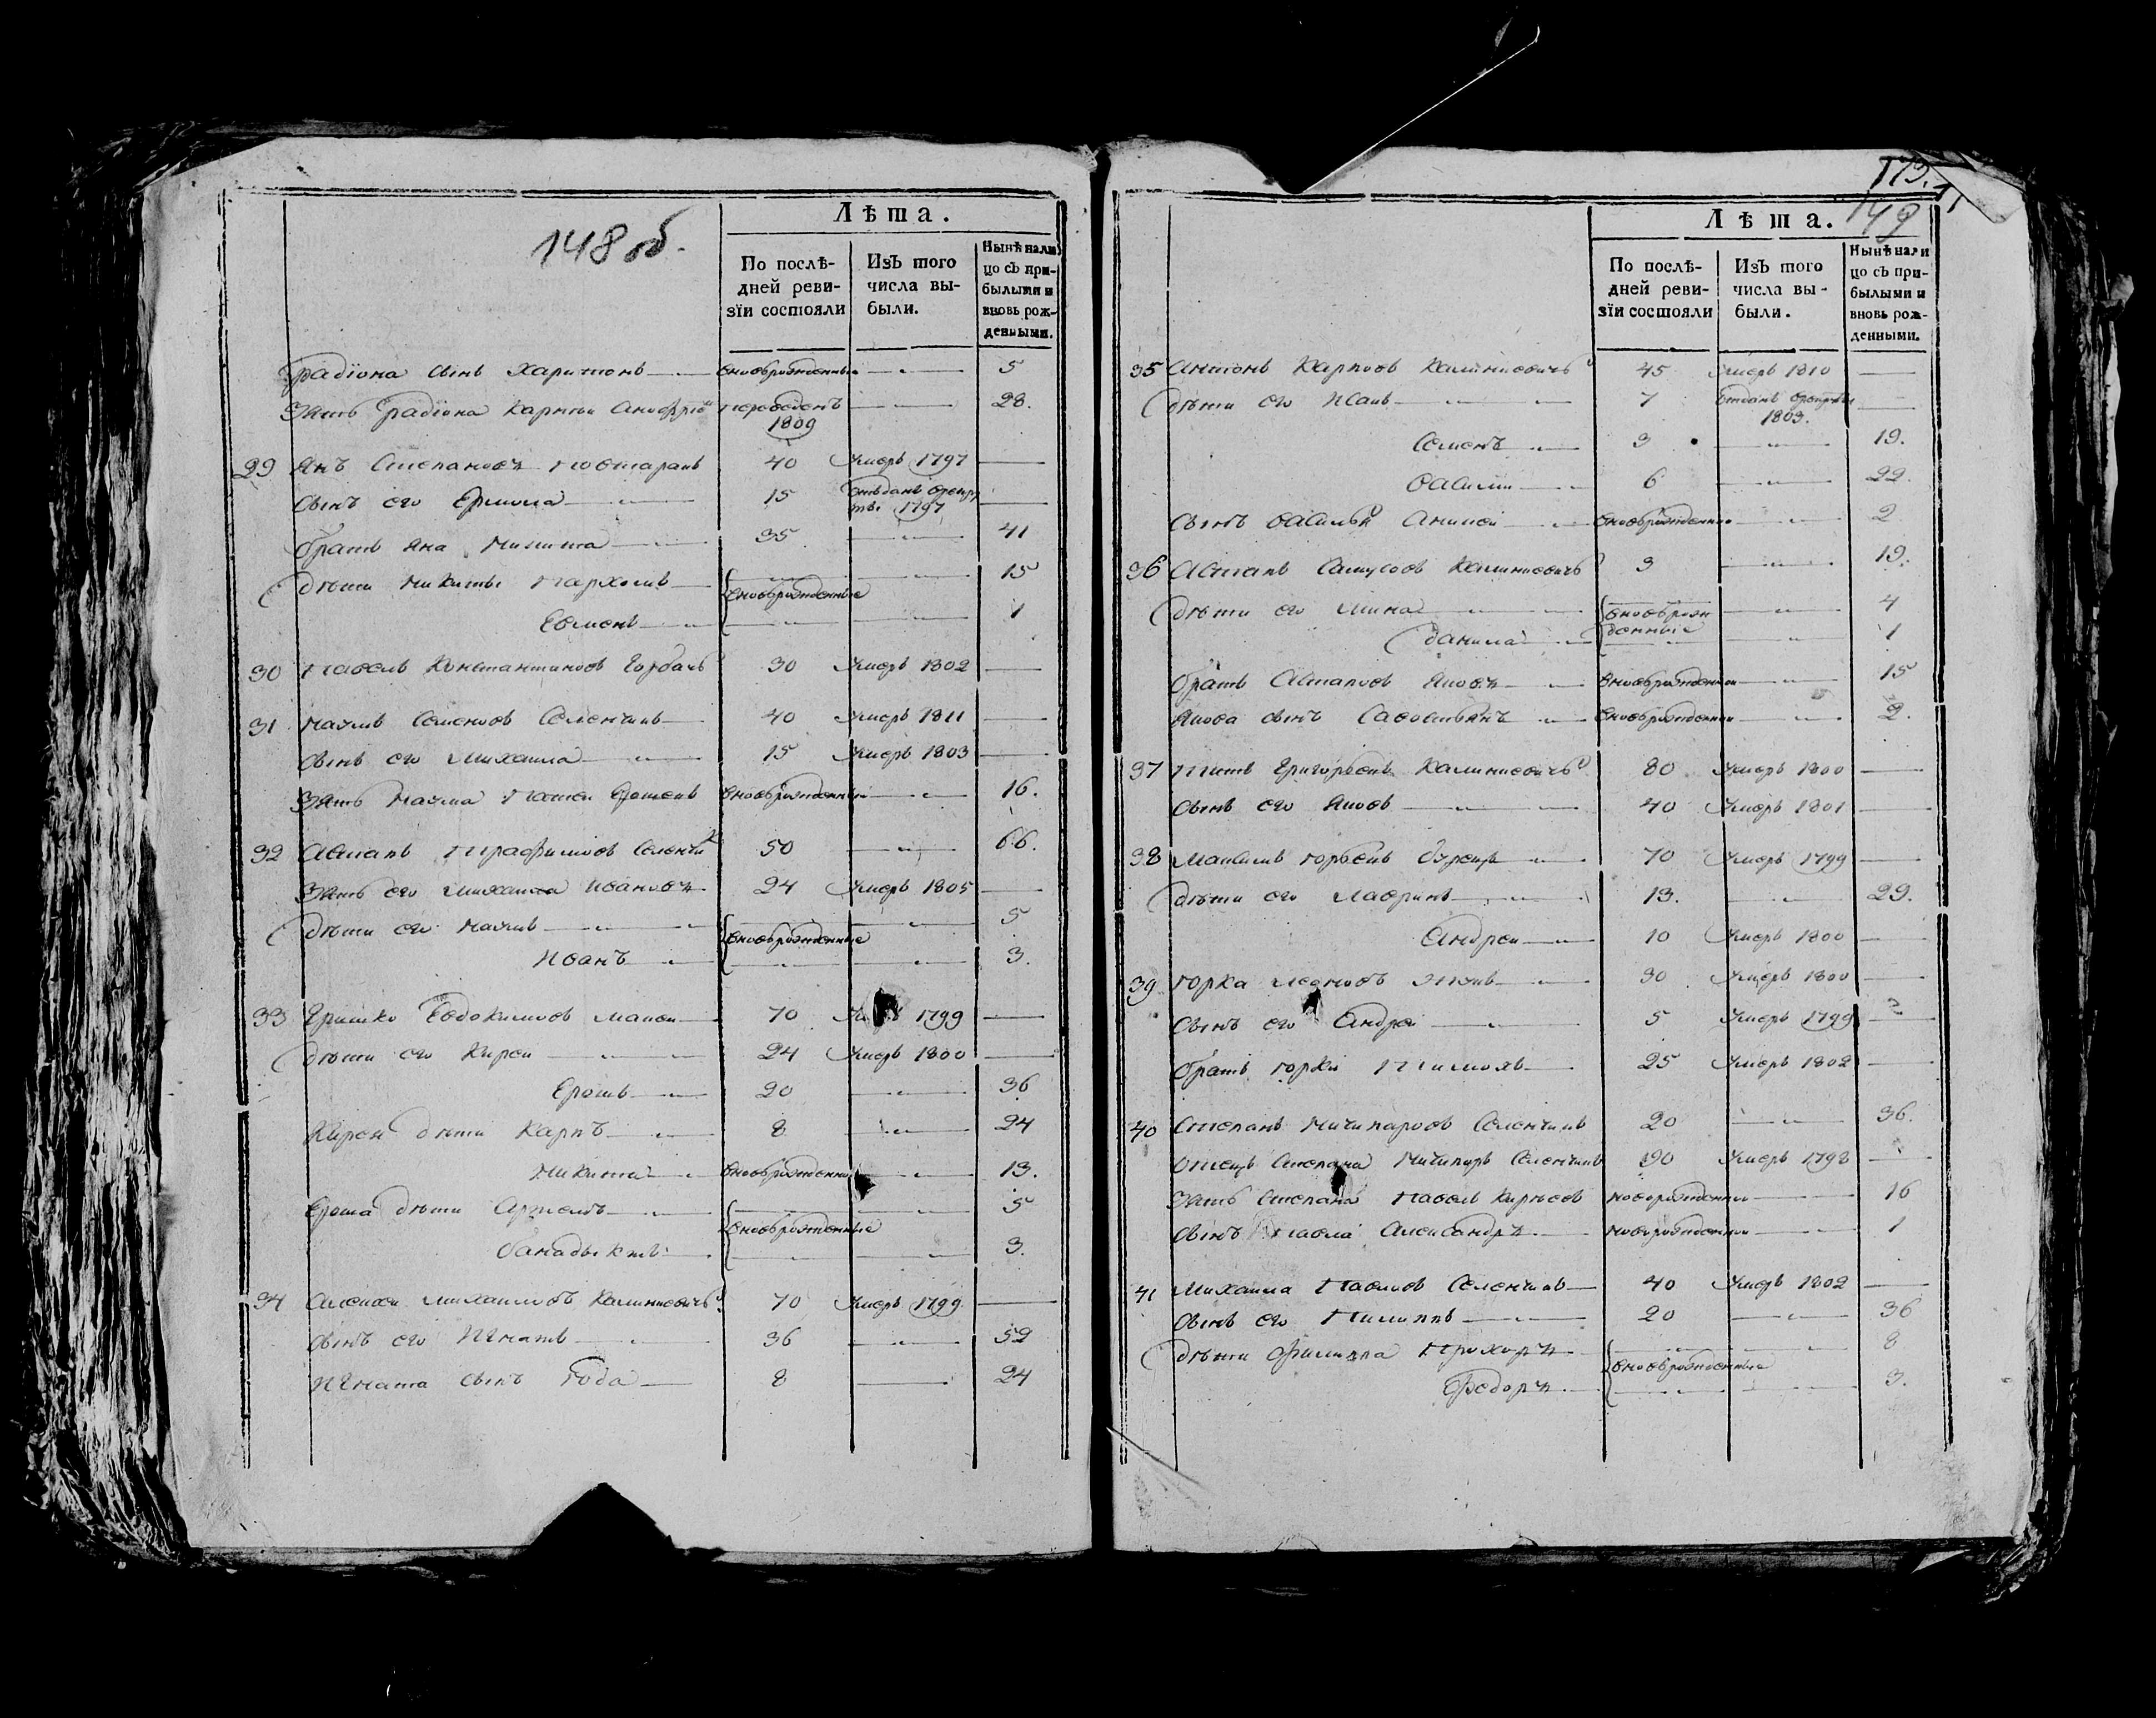 148 об.
Лѣта.
По послѣдней ревизїи состояли
Изъ того числа выбыли.
Нынѣ налицо съ прибылыми и вновь рожденными.
Радїона сынъ Харитонъ вновьрожденный 5
Зять Радїона Карпъ переведенъ 1809 28.
29 Янъ Степановъ 40 Умеръ 1797
Сынъ его Ермола 15 отъданъ 1797
братъ Яна Микита 35 41
Дѣти Микиты Пархомъ вновьрожденные 15
Евменъ 1
30 Павелъ Константиновъ Горбачъ 30 Умеръ 1802
31 Наумъ Семеновъ 40 Умеръ 1811
Сынъ его Михаила 15 Умеръ 1803
Зять Наума вновьрожденный 16.
32 Астапъ Трафимовъ 50 66.
Зять его Михаила Ивановъ 24 Умеръ 1805
Дѣти его Наумъ вновьрожденные 5
Иванъ 3.
33 Гришко Евдокимовъ 70 1799
Дѣти его Кирей 24 Умеръ 1800
Ерошъ 20 36
Кирея дѣти Карпъ 8 24
Микита вновьрожденный 13.
Ероша дѣти Артемъ вновьрожденные 5
Банадыктъ 3.
34 Алексей Михаиловъ Калиневичъ 70 Умеръ 1799
Сынъ его Игнатъ 36 52
Игната сынъ 8 24
173.
149
Лѣта.
По послѣдней ревизїи состояли
Изъ того числа выбыли.
Нынѣ налицо съ прибылыми и вновь рожденными.
35 Антонъ Карповъ Калиневичъ 45 Умеръ 1810
Дѣти его Исакъ 7 отданъ 1803.
Семенъ 3 19.
Василий 6 22.
Сынъ Василья Аникей вновьрожденный 2
36 Астапъ Калиневичъ 3 19.
Дѣти его Мина вновьрожденные 4
Данила 1
братъ Астаповъ Яковъ вновьрожденный 15
Якова сынъ Савостьянъ вновьрожденный 2.
37 Титъ Григорьевъ Калиневичъ 80 Умеръ 1800
Сынъ его Яковъ 40 Умеръ 1801
38 Максимъ 70 Умеръ 1799
Дѣти его Лавринъ 13. 29.
Андрей 10 Умеръ 1800
39 30 Умеръ 1800
Сынъ его Андрей 5 Умеръ 1799
братъ Тимохъ 25 Умеръ 1802
40 Степанъ Мичипаровъ 20 36.
отецъ Степана Мичипаръ 90 Умеръ 1798
Зять Степана Павелъ новорожденный 16
Сынъ Павла Александръ новорожденный 1
41 Михаила Павловъ 40 Умеръ 1802
Сынъ его Пилипъ 20 36
Дѣти Филиппа Прохоръ вновьрожденные 8
Федоръ 3.